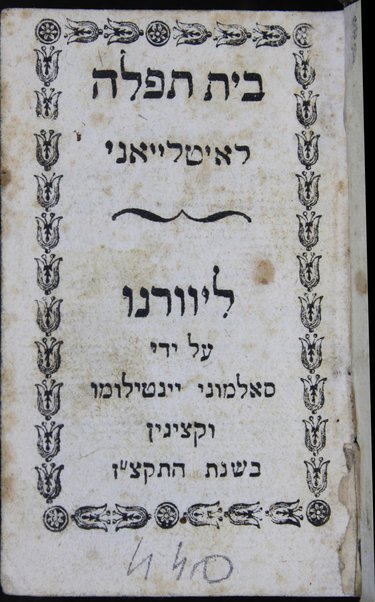 בית תפלה
ראיטלייאני
ליוורנו
על ידי
סאלמוני יינטילומו
וקצינין
בשנת התקצ״ז
440